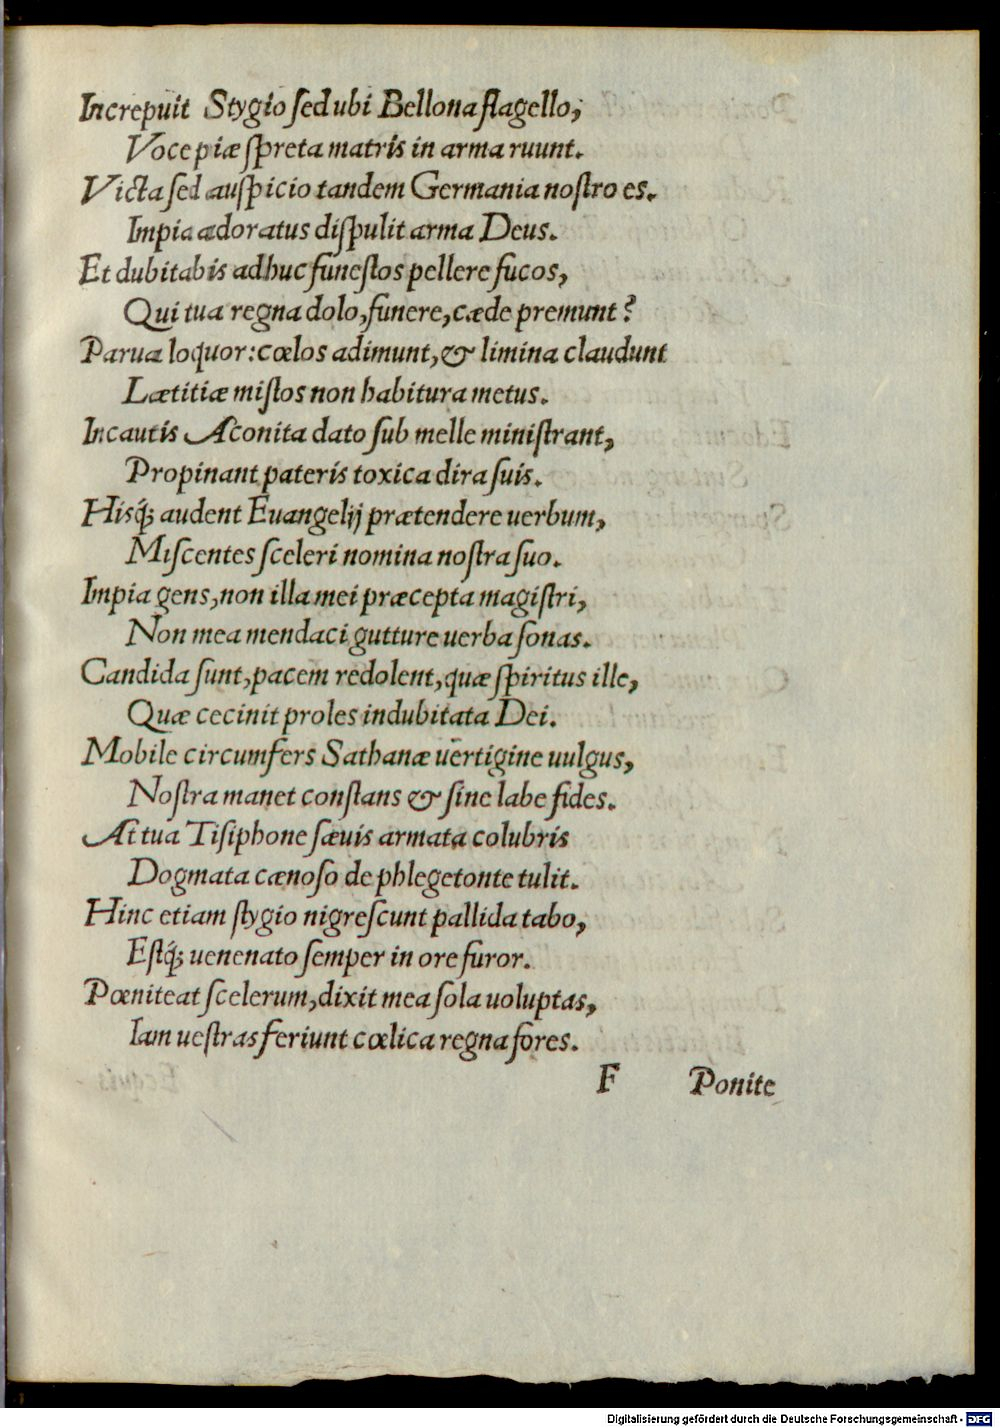 Increpuit Stygio sed ubi Bellona flagello,
Voce piæ spreta matris in arma ruunt.
Victa sed auspicio tandem Germania nostro es.
Impia adoratus dispulit arma Deus.
Et dubitabis adhuc funestos pellere fucos,
Qui tua regna dolo, funere, cæde premunt?
Parua loquor: cœlos adimunt, & limina claudunt
Lætitiæ mistos non habitura metus.
Incautis Aconita dato sub melle ministrant,
Propinant pateris toxica dira suis.
Hisq́; audent Euangelij prætendere uerbum,
Miscentes sceleri nomina nostra suo.
Impia gens, non illa mei præcepta magistri,
Non mea mendaci gutture uerba sonas.
Candida sunt, pacem redolent, quæ spiritus ille,
Quæ cecinit proles indubitata Dei.
Mobile circumfers Sathanæ uertigine uulgus,
Nostra manet constans & sine labe fides.
At tua Tisiphone sæuis armata colubris
Dogmata cænoso de phlegetonte tulit.
Hinc etiam stygio nigrescunt pallida tabo,
Estq́; uenenato semper in ore furor.
Pœniteat scelerum, dixit mea sola uoluptas,
Iam uestras feriunt cœlica regna fores.
F Ponite
Digitalisierung gefördert durch die Deutsche Forschungsgemeinschaft - DFG